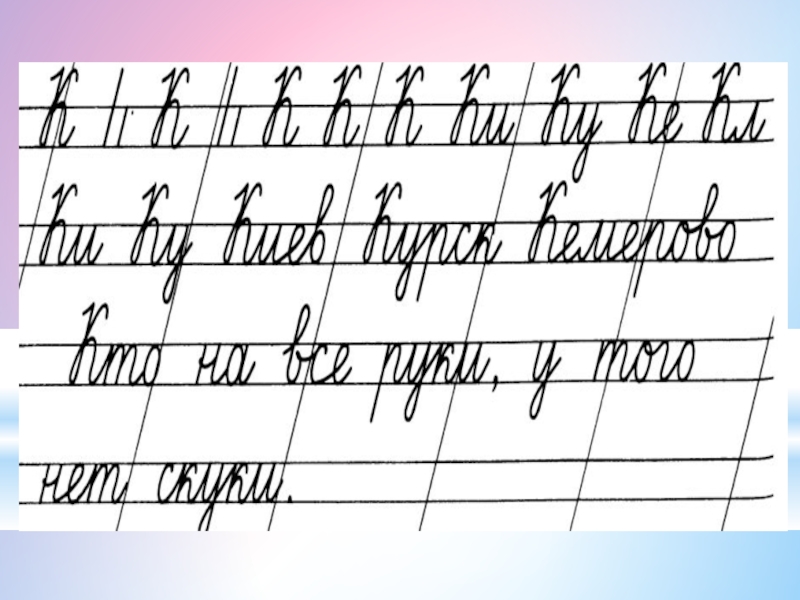 К К К К К Ки Ку Ке Кл
Ки Ку Киев Курск Кемерово
Кто на все руки, у того
нет скуки.